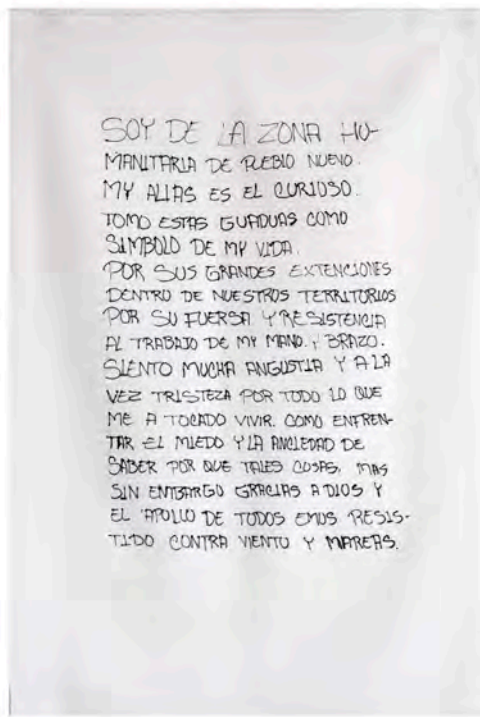 SOY DE LA ZONA HU-
MANITARIA DE PUEBLO NUEVO.
MY ALIAS ES EL CURIOSO.
TOMO ESTAS GUADUAS COMO
SIMBOLO DE MY VIDA.
POR SUS GRANDES EXTENCIONES
DENTRO DE NUESTROS TERRITORIOS
POR SU FUERSA Y RESISTENCIA
AL TRABAJO DE MY MANO. Y BRAZO.
SIENTO MUCHA ANGUSTIA Y A LA
VEZ TRISTEZA POR TODO LO QUE
ME A TOCADO VIVIR. COMO ENFREN-
TAR EL MIEDO Y LA ANCIEDAD DE
SABER POR QUE TALES COSAS. MAS
SIN EMBARGO GRACIAS A DIOS Y
EL APOLLO DE TODOS EMOS RESIS-
TIDO CONTRA VIENTO Y MAREAS.